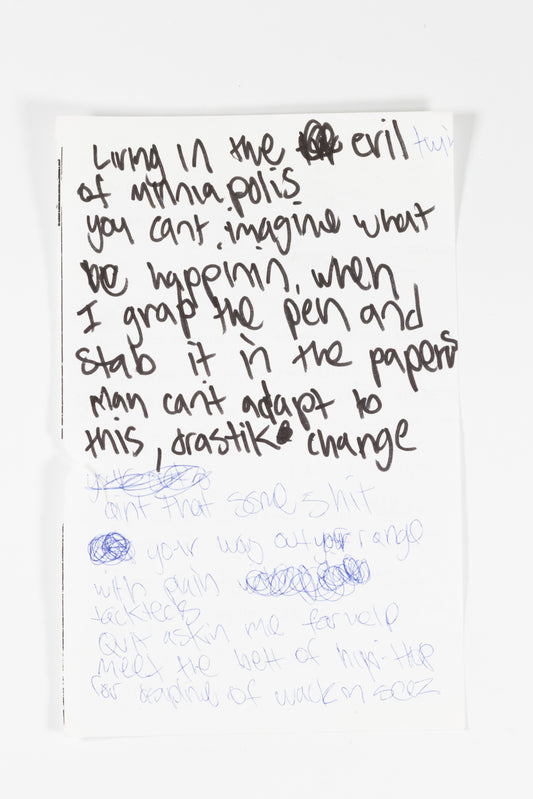 Living in the evil twi
of minnia polis
you cant, imagine what
be happinin, when
I grap the pen and
stab it in the papers
man can't adapt to
this, drastik change
aint that some shit
your way out your range
with plain
tackteds
Quit askin me for help
meet the belt of hip-Hop
for of wack m seez